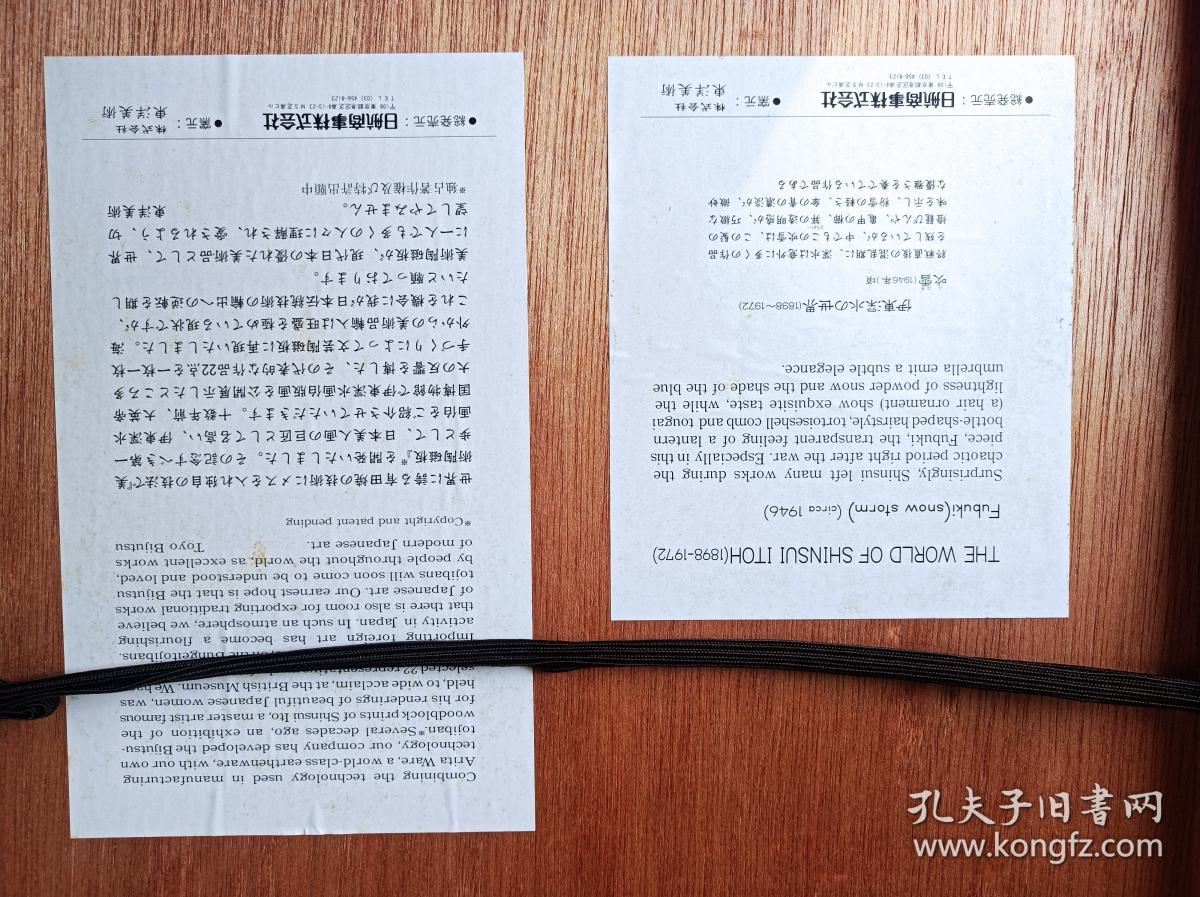 THE WORLD OF SHINSUI ITOH(1898-1972)
Fubuki(snow storm) (circa 1946)
Surprisingly, Shinsui left many works during the
chaotic period right after the war. Especially in this
piece, Fubuki, the transparent feeling of a lantern
bottle-shaped hairstyle, tortoiseshell comb and tougai
(a hair ornament) show exquisite taste, while the
lightness of powder snow and the shade of the blue
umbrella emit a subtle elegance.
伊東深水の世界(1898〜1972)
吹雪(1946年)頃
終戦直後の混乱期に、深水は意外に多くの作品
を残しているが、中でもこの吹雪は、この髪の
燈籠びんや、亀甲の櫛、笄の透明感が、巧緻な
味を示し、粉雪の軽さ、傘の青の濃淡が、微妙
な優雅さを奏でている作品である
●総発売元：日航商事株式会社 ●窯元：株式会社東洋美術
〒108 東京都港区芝浦4-13-23 MS芝浦ビル
TEL (03) 456-8123
Combining the technology used in manufacturing
Arita Ware, a world-class earthenware, with our own
technology, our company has developed the Bijutsu-
tojiban.*Several decades ago, an exhibition of the
woodblock prints of Shinsui Ito, a master artist famous
for his renderings of beautiful Japanese women, was
held, to wide acclaim, at the British Museum. We
selected 22
the Bungeitojibans.
Importing foreign art has become a flourishing
activity in Japan. In such an atmosphere, we believe
that there is also room for exporting traditional works
of Japanese art. Our earnest hope is that the Bijutsu
tojibans will soon come to be understood and loved,
by people throughout the world, as excellent works
of modern Japanese art. Toyo Bijutsu
*Copyright and patent pending
世界に誇る有田焼の技術にメスを入れ独自の技法で『美
術陶磁板』*を開発いたしました。その記念すべき第一
歩として、日本美人画の巨匠として名高い、伊東深水
画伯をご紹介させていただきます。十数年前、大英帝
国博物館で伊東深水画伯版画を公開展示したところ多
大の反響を博した、その代表的な作品22点を一枚一枚
手づくりによって文芸陶磁板に再現いたしました。海
外からの美術品輸入は旺盛を極めている現状ですが、
これを機会に我が日本伝統技術の輸出への逆転を期し
たいと願っております。
美術陶磁板が、現代日本の優れた美術品として、世界
に一人でも多くの人々に理解され、愛されるよう、切
望してやみません。 東洋美術
*独占著作権及び特許出願中
●総発売元：日航商事株式会社 ●窯元：株式会社東洋美術
〒108 東京都港区芝浦4-13-23 MS芝浦ビル
TEL (03) 456-8123
孔夫子旧书网
www.kongfz.com